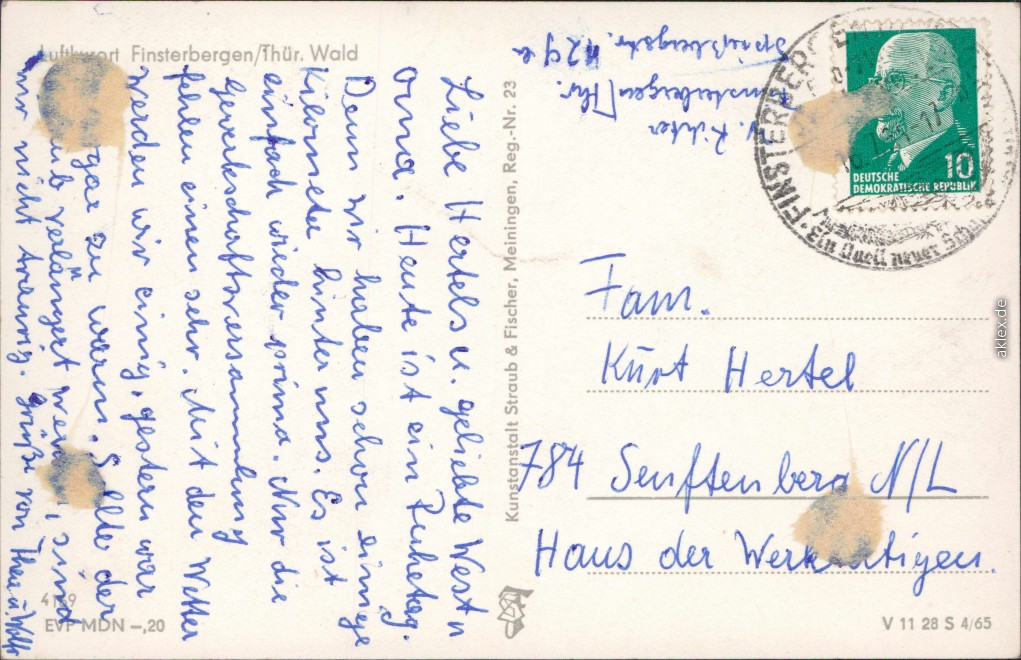 Luftkurort Finsterbergen/Thür. Wald
Liebe Hertels u. geliebte West
Oma. Heute ist ein Ruhetag.
Denn wir haben schon einige
Kilometer hinter uns. Es ist
einfach wieder prima. Nur die
Gewerkschaftsversammlung
fehlen einem sehr. Mit den Wetter
werden wir einig, gestern war
gar zu warm. Sollte der
verlängert wern, sind
wir nicht traurig. Grüße von
Kunstanstalt Straub & Fischer, Meiningen, Reg.-Nr. 23
Richter
Finsterbergen/Thür.
129a
DEUTSCHE
DEMOKRATISCHE REPUBLIK
10
FINSTERBERGEN
Ein Quell neuer
Fam.
Kurt Hertel
784 Senftenberg N/L
Haus der Werktätigen.
EVP MDN -,20
V 11 28 S 4/65
aklex.de